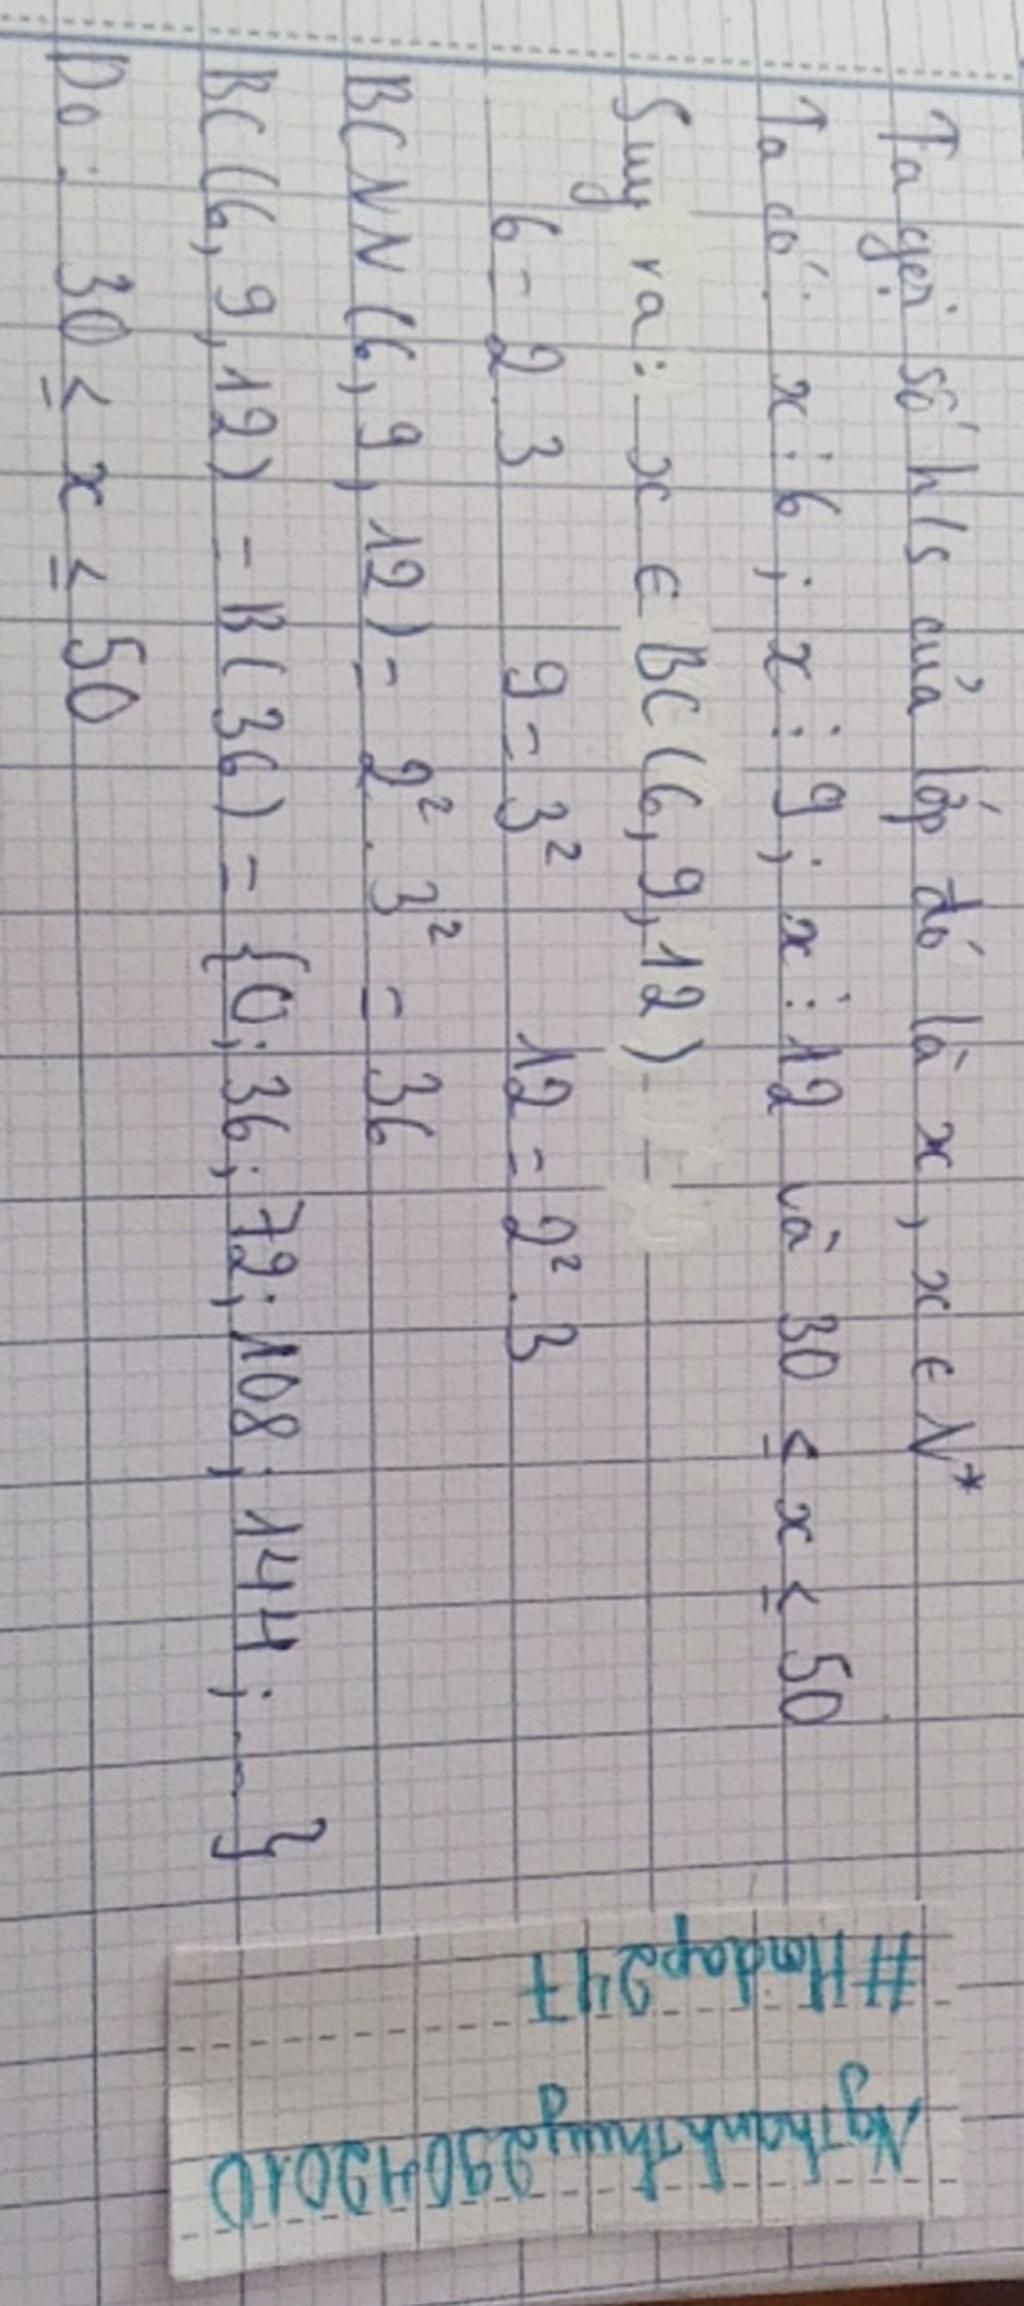 Ta gọi số h/s của lớp đó là x, x ∈ N*
Ta có: x ⋮ 6; x ⋮ 9; x ⋮ 12 và 30 ≤ x ≤ 50
Suy ra: x ∈ BC(6,9,12)
6 = 2.3 9 = 3² 12 = 2².3
BCNN(6,9,12) = 2².3² = 36
BC(6,9,12) = B(36) = {0;36;72;108;144;...}
Do: 30 ≤ x ≤ 50
#Hoidap247
NgThanhThuy29042010